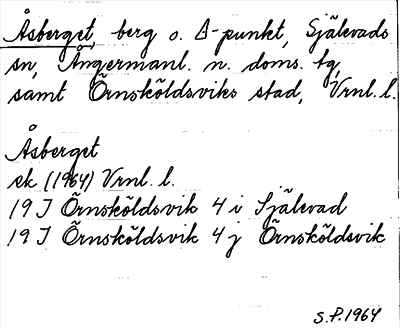 Åsberget, berg o. Δ-punkt, Själevads
sn, Ångermanl. n. doms. tg,
samt Örnsköldsviks stad, Vrnl. l.
Åsberget
ek (1964) Vrnl. l.
19 J Örnsköldsvik 4 i Själevad
19 J Örnsköldsvik 4 j Örnsköldsvik
S.P. 1964